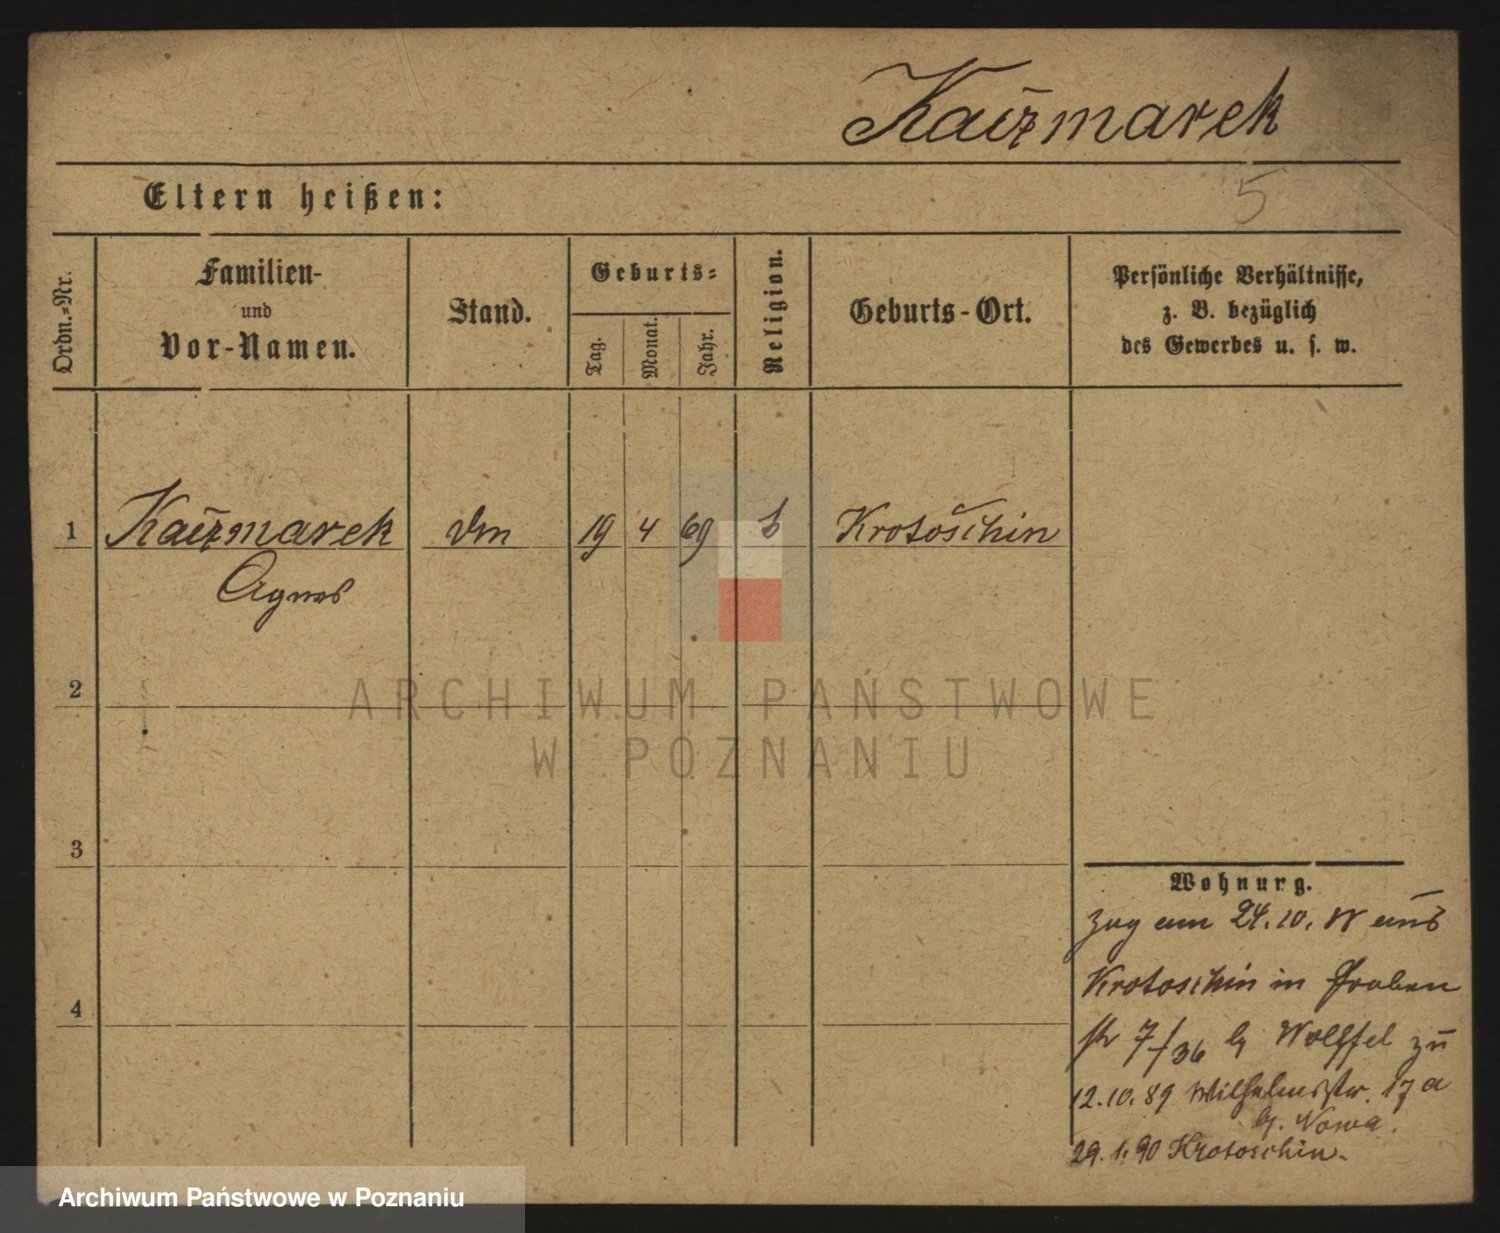 Kaczmarek
5
Eltern heißen:
Ordn.-Nr.
Familien-
und
Vor-Namen.
Stand.
Geburts-
Tag.
Monat.
Jahr.
Religion.
Geburts-Ort.
Persönliche Verhältnisse,
z. B. bezüglich
des Gewerbes u. s. w.
1 Kaczmarek 19 4 69 Krotoschin
Agnes
2
3
4
Wohnung.
zug am 24.10. aus
Krotoschin in Graben
str 7/36 b Wolffel zu
12.10.89 Wilhelmstr. 17a
b. Nowa.
29.1.90 Krotoschin.
ARCHIWUM PAŃSTWOWE
W POZNANIU
Archiwum Państwowe w Poznaniu